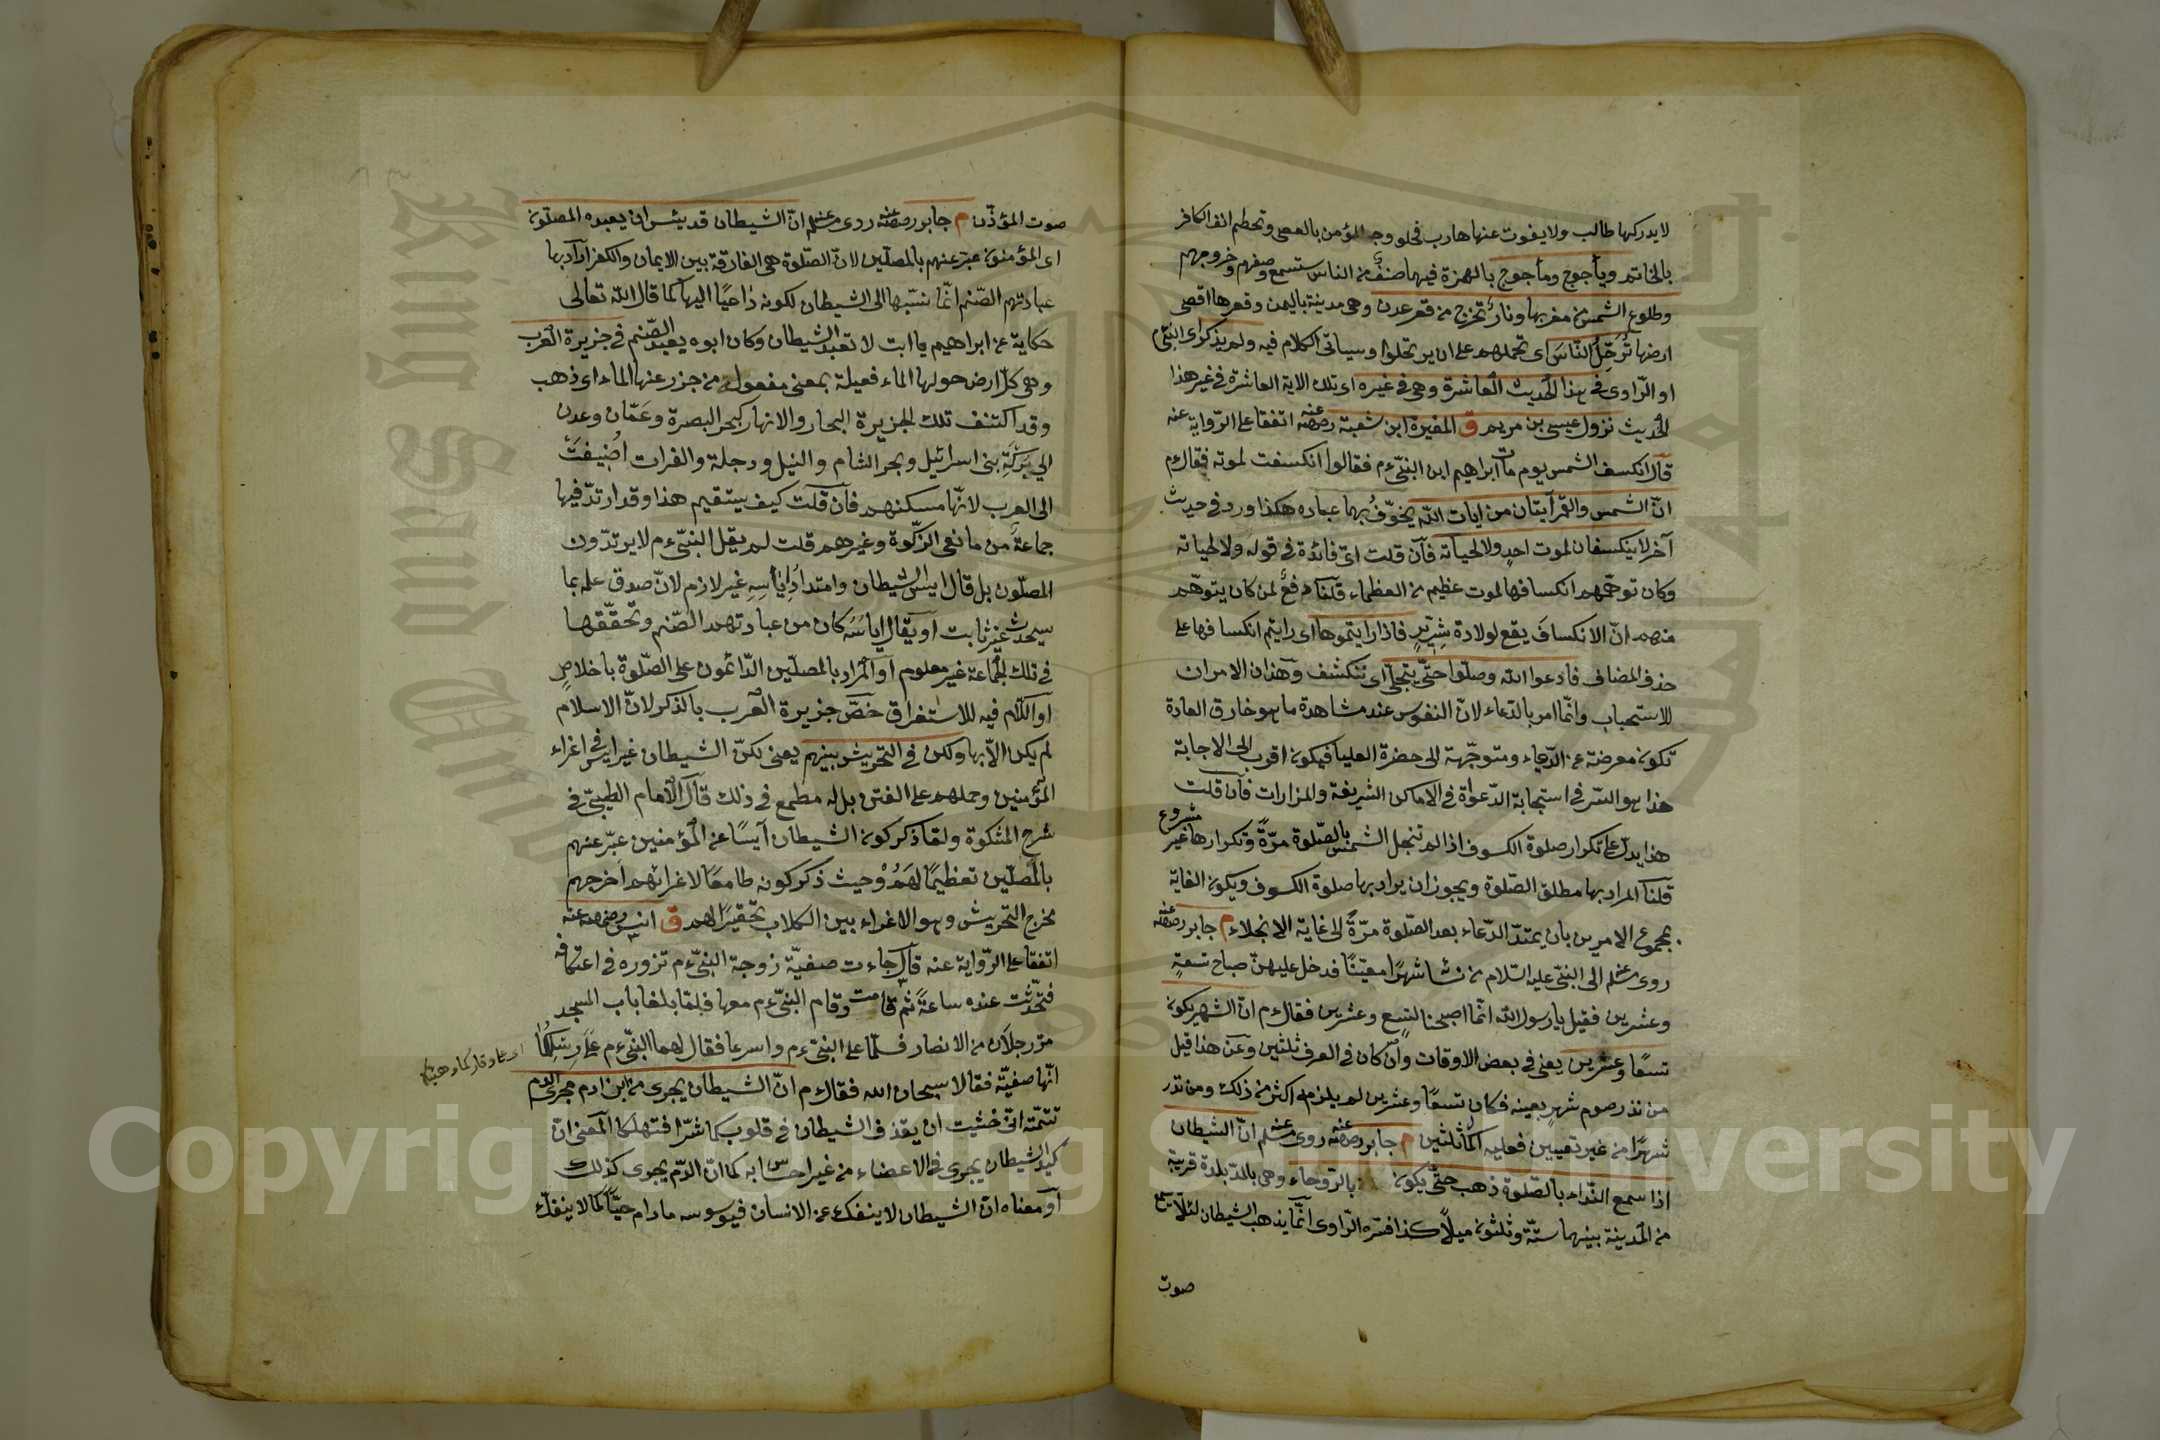 لا يدركها طالب ولا يفوت عنها هارب فتجلو وجه المؤمن بالعصى وتحطم انف الكافر
بالخاتم ويأجوج ومأجوج بالهمزة فيها صنف من الناس ستسمع وصفهم وخروجهم
وطلوع الشمس من مغربها ونار تخرج من قعر عدن وهي مدينة باليمن وقعرها اقصى
ارضها تُرَحِّلُ النّاسَ اى تحملهم على ان يرتحلوا وسيأتى الكلام فيه ولم يذكر اى النبىّ م
او الرّاوى فى هذا الحديث العاشرة وهى فى غيره اى تلك الاية العاشرة فى غير هذا
الحديث نزول عيسى بن مريم ق المغيرة ابن شعبة رضى الله عنه اتفقا على الرّواية عنه
قال انكسف الشمس يوم مات ابراهيم ابن النبىّ م فقالوا انكسفت لموته فقال م
انّ الشمس والقمر آيتان من ايات اللّه يخوّفُ بهما عباده هكذا ورد فى حديث
آخر لا ينكسفان لموت احدٍ ولا لحياته فان قلت اىّ فائدة فى قوله ولا لحياته
وكان توهّمهم انكسافها لموت عظيم من العظماء قلنا دفعٌ لمن كان يتوهّم
منهم انّ الانكسافَ يقع لولادة شِرّيرٍ فاذا رايتموها اى رايتم انكسافها على
حذف المضاف فادعوا اللّه وصلّوا حتّى ينجلى اى تنكشف وهذان الامران
للاستحباب وانّما امر بالدّعاء لانّ النفوس عند مشاهدة ما هو خارق العادة
تكون معرضة عن الدّعاء ومتوجّهة الى حضرة العليا فيكون اقرب الى الاجابة
هذا هو السّر فى استجابة الدّعواة فى الاماكن الشريفة والمزارات فان قلت
هذا يدلّ على تكرار صلوة الكسوف اذا لم تنجل الشمس بالصّلوة مرّةً وتكرارها غير مشروع
قلنا المراد بها مطلق الصّلوة ويجوز ان يراد بها صلوة الكسوف ويكون الغاية
بمجموع الامرين بان يمتدّ الدّعاء بعد الصّلوة مرّةً الى غاية الانجلاء م جابر رضى الله عنه
روى مسلم عنه الى النبىّ عليه السّلام من نسائه شهرًا معيّنًا فدخل عليهنّ صباح تسعةٍ
وعشرين فقيل يا رسول اللّه انّما اصبحنا لتسع وعشرين فقال م انّ الشهر يكون
تسعًا وعشرين يعنى فى بعض الاوقات وان كان فى العرف ثلثين وعن هذا قيل
من نذر صوم شهرٍ بعينه فكان تسعًا وعشرين لم يلزمه اكثر من ذلك ومن نذر
شهرًا من غير تعيين فعليه اكمال ثلثين م جابر رضى الله عنه روى مسلم عنه انّ الشيطان
اذا سمع النّداء بالصّلوة ذهب حتّى يكون بالرّوحاء وهى بالمدّ بلدة قريبة
من المدينة بينهما ستّة وثلثون ميلًا كذا فسّره الرّاوى انّما يذهب الشيطان لئلّا يسمع
صوت
صوت المؤذّن م جابر رضى الله عنه روى مسلم عنه انّ الشيطان قد يئس ان يعبده المصلّون
اى المؤمنون عبّر عنهم بالمصلّين لانّ الصّلوة هى الفارقة بين الايمان والكفر اراد بها
عبادتهم الصّنم انّما نسبها الى الشيطان لكونه داعيًا اليها كما قال اللّه تعالى
حكاية عن ابراهيم يا ابت لا تعبد الشيطان وكان ابوه يعبد الصّنم فى جزيرة العرب
وهى كلّ ارض حولها الماء فعيلة بمعنى مفعولة من جزر عنها الماء اى ذهب
وقد اكتنف تلك الجزيرة البحار والانهار كبحر البصرة وعَمّان وعدن
الى بَرَكَةِ بنى اسرائيل وبحر الشام والنيل ودجلة والفرات اُضيفَتْ
الى العرب لانّها مسكنهم فان قلت كيف يستقيم هذا وقد ارتدّ فيها
جماعةٌ من مانعى الزّكوة وغيرهم قلت لم يقل النبىّ م لا يرتدّون
المصلّون بل قال ايس الشيطان وامتدادُ اِيَاسِهِ غير لازم لانّ صدوق علمه بما
سيحدث غير ثابت او يقال اياسُه كان من عبادتهم الصّنم وتحقّقها
فى تلك الجماعة غير معلوم او المراد بالمصلّين الدّائمون على الصّلوة باخلاصٍ
او اللّام فيه للاستغراق خصّ جزيرة العرب بالذكر لانّ الاسلام
لم يكن الّا بها ولكن فى التحريش بينهم يعنى لكنّ الشيطان غير ايس فى اغراء
المؤمنين وحملهم على الفتن بل له مطمع فى ذلك قال الامام الطيبىّ فى
شرح المشكوة ولمّا ذكر كون الشيطان آيسًا عن المؤمنين عبّر عنهم
بالمصلّين تعظيمًا لهم وحيث ذكر كونه طامعًا لاغرائهم اَخرجهم
مخرج التحريش وهو الاغراء بين الكلاب تحقيرًا لهم ق انس رضى الله عنه
اتفقا على الرّواية عنه قال جاءت صفيّة زوجة النبىّ م تزوره فى اعتكافه
فتحدّثت عنده ساعةً ثمّ قامت وقام النبىّ م معها فلمّا بلغا باب المسجد
مرّ رجلان من الانصار فسلّما على النبىّ م واسرعا فقال لهما النبىّ م على رِسْلِكُمَا
انّها صفيّة فقالا سبحان الله فقال م انّ الشيطان يجرى من ابن ادم مجرى الدّم
تتمّته انّى خشيت ان يقذف الشيطان فى قلوبكما شرًّا فتهلكا المعنى انّ
كيد الشيطان يجرى فى الاعضاء من غير احساس به كما انّ الدّم يجرى كذلك
او معناه انّ الشيطان لا ينفكّ عن الانسان فيوسوسه ما دام حيًّا كما لا ينفكّ
Copyright © King Saud University
King Saud University
1957